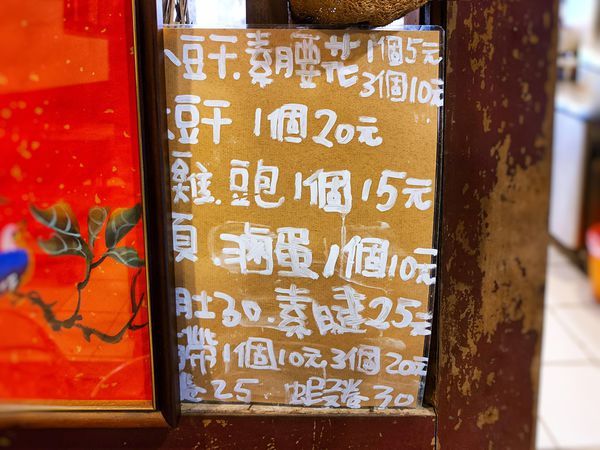 小豆干.素腰花 1個5元
3個10元
大豆干 1個20元
雞.頭 1個15元
滷蛋 1個10元
肚30.素腱25元
帶1個10元3個20元
捲25 蝦卷30